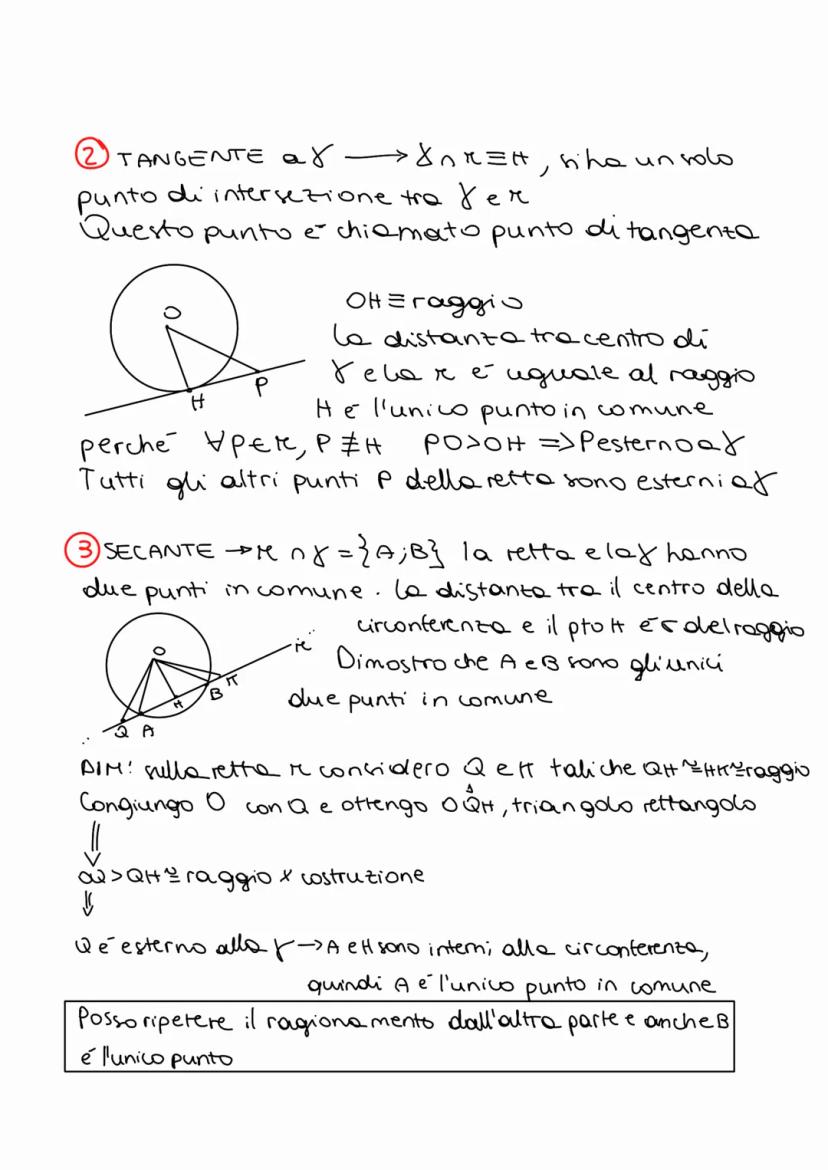 ② TANGENTE a γ → γ ∩ r ≡ H, si ha un solo
punto di intersezione tra γ e r
Questo punto é chiamato punto di tangenza
O
H
P
OH ≡ raggio
La distanza tra centro di
γ e la r é uguale al raggio
H é l'unico punto in comune
perché ∀P∈r, P ≢ H PO>OH => P esterno a γ
Tutti gli altri punti P della retta sono esterni a γ
③ SECANTE → r ∩ γ = {A;B} la retta e la γ hanno
due punti in comune. La distanza tra il centro della
circonferenza e il pto H é < del raggio
Dimostro che A e B sono gli unici
due punti in comune
O
r
K
B
H
Q A
DIM: sulla retta r considero Q e K tali che QH≅HK≅raggio
Congiungo O con Q e ottengo OQ̂H, triangolo rettangolo
⇓
OQ>QH≅raggio x costruzione
⇓
Q é esterno alla γ → A e H sono interni alla circonferenza,
quindi A é l'unico punto in comune
Posso ripetere il ragionamento dall'altra parte e anche B
é l'unico punto